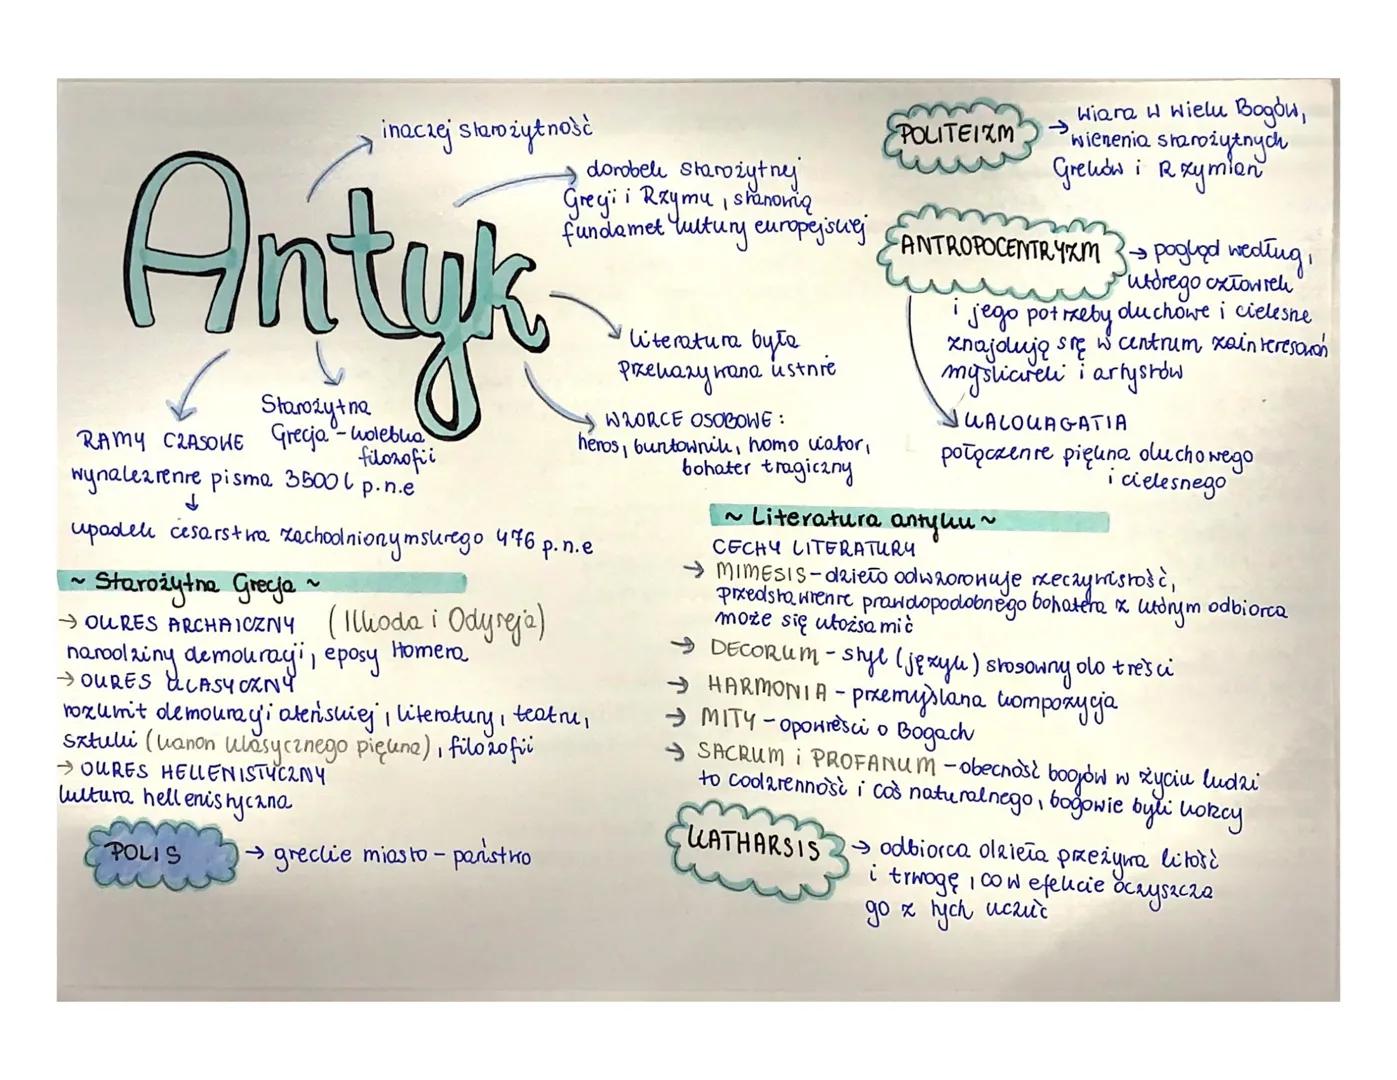 Antyk
inaczej starożytność
dorobek starożytnej
Grecji i Rzymu, stanowią
fundamet kultury europejskiej
literatura była
przekazywana ustnie
WZORCE OSOBOWE:
heros, buntownik, homo viator,
bohater tragiczny
Starożytna
Grecja - kolebka
filozofii
RAMY CZASOWE
wynalezienie pisma 3500 l p.n.e
↓
upadek cesarstwa zachodniorzymskiego 476 p.n.e
~ Starożytna Grecja ~
→ OKRES ARCHAICZNY (Iliada i Odyseja)
narodziny demokracji, eposy Homera
→ OKRES KLASYCZNY
rozkwit demokracji ateńskiej, literatury, teatru,
sztuki (kanon klasycznego piękna), filozofii
→ OKRES HELLENISTYCZNY
kultura hellenistyczna
POLIS → greckie miasto - państwo
POLITEIZM → wiara w wielu Bogów,
wierzenia starożytnych
Greków i Rzymian
ANTROPOCENTRYZM → pogląd według,
którego człowiek
i jego potrzeby duchowe i cielesne
znajdują się w centrum zainteresowań
myślicieli i artystów
KALOKAGATIA
połączenie piękna duchowego
i cielesnego
~ Literatura antyku ~
CECHY LITERATURY
→ MIMESIS - dzieło odwzorowuje rzeczywistość,
przedstawienie prawdopodobnego bohatera z którym odbiorca
może się utożsamić
→ DECORUM - styl (język) stosowny do treści
→ HARMONIA - przemyślana kompozycja
→ MITY - opowieści o Bogach
→ SACRUM i PROFANUM - obecność bogów w życiu ludzi
to codzienność i coś naturalnego, bogowie byli
KATHARSIS → odbiorca dzieła przeżywa litość
i trwogę, co w efekcie oczyszcza
go z tych uczuć